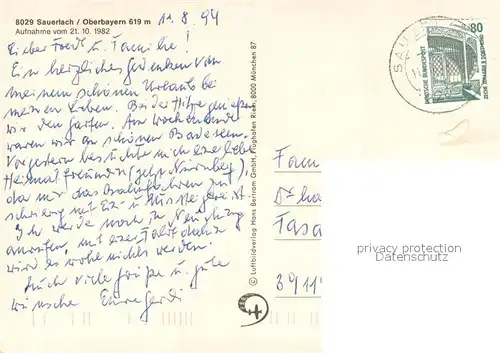 8029 Sauerlach / Oberbayern 619 m
Aufnahme vom 21. 10. 1982
11.8.94
Lieber Fredl u. Familie!
Ein herzliches Gedenken von
meinem schönen Urlaub bei
meinen Lieben. Bei der Hitze genießen
wir den Garten. Am Wochenende
waren wir an schönen Badeseen.
Vorgestern besuchte mich eine liebe
Heimatfreundin (jetzt Nürnberg),
da mir das Bahnfahren zu
schwierig mit Ein- u. Aussteigen ist.
Ich werde noch in
anrufen, mit einer Fahrt dahin
wird es wohl nichts werden.
Auch viele Grüße u. gute
Wünsche
© Luftbildverlag Hans Bertram GmbH, Flughafen Riem, 8000 München 87
80
DEUTSCHE BUNDESPOST
SAUER
Fam
Fasa
3911
privacy protection
Datenschutz